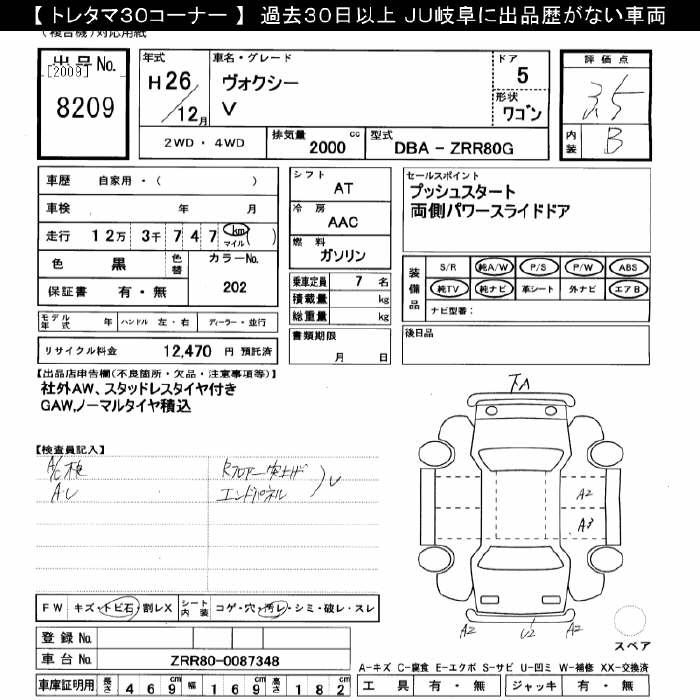 【 トレタマ30コーナー 】 過去30日以上 JU岐阜に出品歴がない車両
(複合機)対応用紙
出品No.
[2009]
8209
年式
H26
12月
車名・グレード
ヴォクシー
V
ドア
5
形状
ワゴン
評価点
3.5
内装
B
2WD・4WD
排気量
2000 cc
型式
DBA - ZRR80G
車歴 自家用・( )
車検 年 月
走行 12万 3千 7 4 7 km マイル ( )
色 黒
色替
カラーNo.
202
保証書 有・無
シフト
AT
冷房
AAC
燃料
ガソリン
乗車定員 7 名
積載量 kg
総重量 kg
書類期限
月 日
セールスポイント
プッシュスタート
両側パワースライドドア
装備品
S/R 純A/W P/S P/W ABS
純TV 純ナビ 革シート 外ナビ エアB
ナビ型番:
後日品
モデル年式 年 ハンドル 左・右 ディーラー・並行
リサイクル料金 12,470 円 預託済
【出品店申告欄(不良箇所・欠品・注意事項等)】
社外AW、スタッドレスタイヤ付き
GAW,ノーマルタイヤ積込
【検査員記入】
AU
エンドパネル
A2
A3
A2
U2
A2
スペア
FW キズ・トビ石・割レX
シート内装 コゲ・穴・汚レ・シミ・破レ・スレ
登録No.
車台No. ZRR80-0087348
A-キズ C-腐食 E-エクボ S-サビ U-凹ミ W-補修 XX-交換済
車庫証明用 長さ 4 6 9 cm 幅 1 6 9 cm 高さ 1 8 2 cm
工具 有・無 ジャッキ 有・無